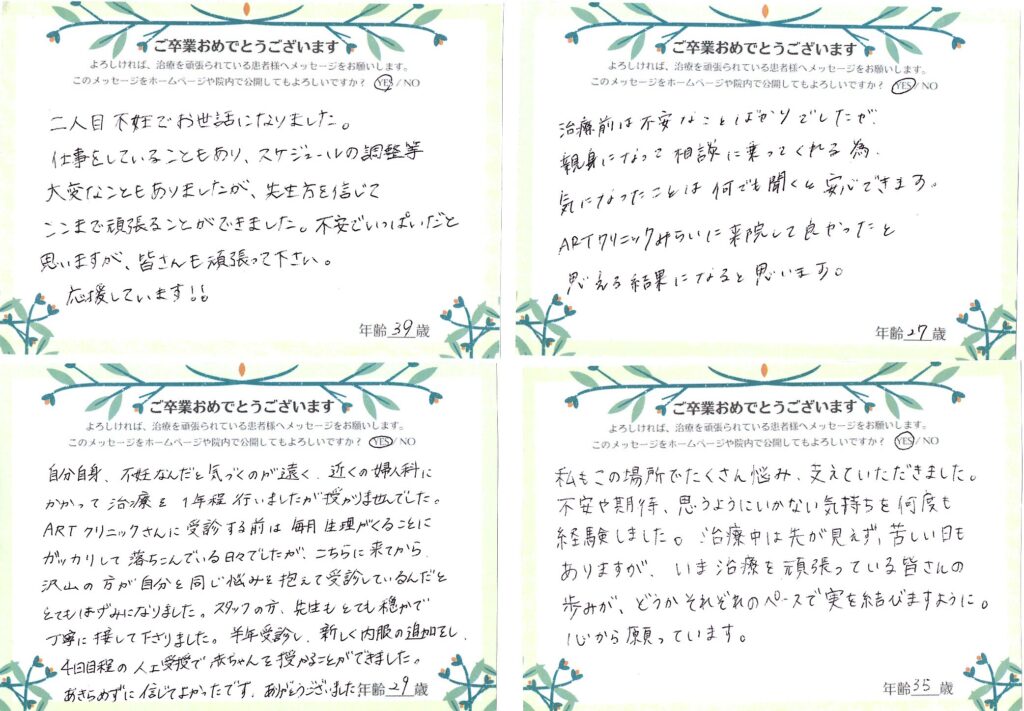 ご卒業おめでとうございます
よろしければ、治療を頑張られている患者様へメッセージをお願いします。
このメッセージをホームページや院内で公開してもよろしいですか？ YES / NO
二人目不妊でお世話になりました。
仕事をしていることもあり、スケジュールの調整等
大変なこともありましたが、先生方を信じて
ここまで頑張ることができました。不安でいっぱいだと
思いますが、皆さんも頑張って下さい。
応援しています!!
年齢 39 歳
ご卒業おめでとうございます
よろしければ、治療を頑張られている患者様へメッセージをお願いします。
このメッセージをホームページや院内で公開してもよろしいですか？ YES / NO
治療前は不安なことばかりでしたが、
親身になって相談に乗ってくれる為、
気になったことは何でも聞くと安心できます。
ARTクリニックみらいに来院して良かったと
思える結果になると思います。
年齢 27 歳
ご卒業おめでとうございます
よろしければ、治療を頑張られている患者様へメッセージをお願いします。
このメッセージをホームページや院内で公開してもよろしいですか？ YES / NO
自分自身、不妊なんだと気づくのが遠く、近くの婦人科に
かかって治療を1年程行いましたが授かりませんでした。
ARTクリニックさんに受診する前は毎月生理がくることに
ガッカリして落ちこんでいる日々でしたが、こちらに来てから、
沢山の方が自分と同じ悩みを抱えて受診しているんだと
とてもはげみになりました。スタッフの方、先生もとても穏かで
丁寧に接して下さりました。半年受診し、新しく内服の追加をし、
4回目程の人工受授で赤ちゃんを授かることができました。
あきらめずに信じてよかったです。ありがとうございました
年齢 29 歳
ご卒業おめでとうございます
よろしければ、治療を頑張られている患者様へメッセージをお願いします。
このメッセージをホームページや院内で公開してもよろしいですか？ YES / NO
私もこの場所でたくさん悩み、支えていただきました。
不安や期待、思うようにいかない気持ちを何度も
経験しました。治療中は先が見えず、苦しい日も
ありますが、いま治療を頑張っている皆さんの
歩みが、どうかそれぞれのペースで実を結びますように。
心から願っています。
年齢 35 歳